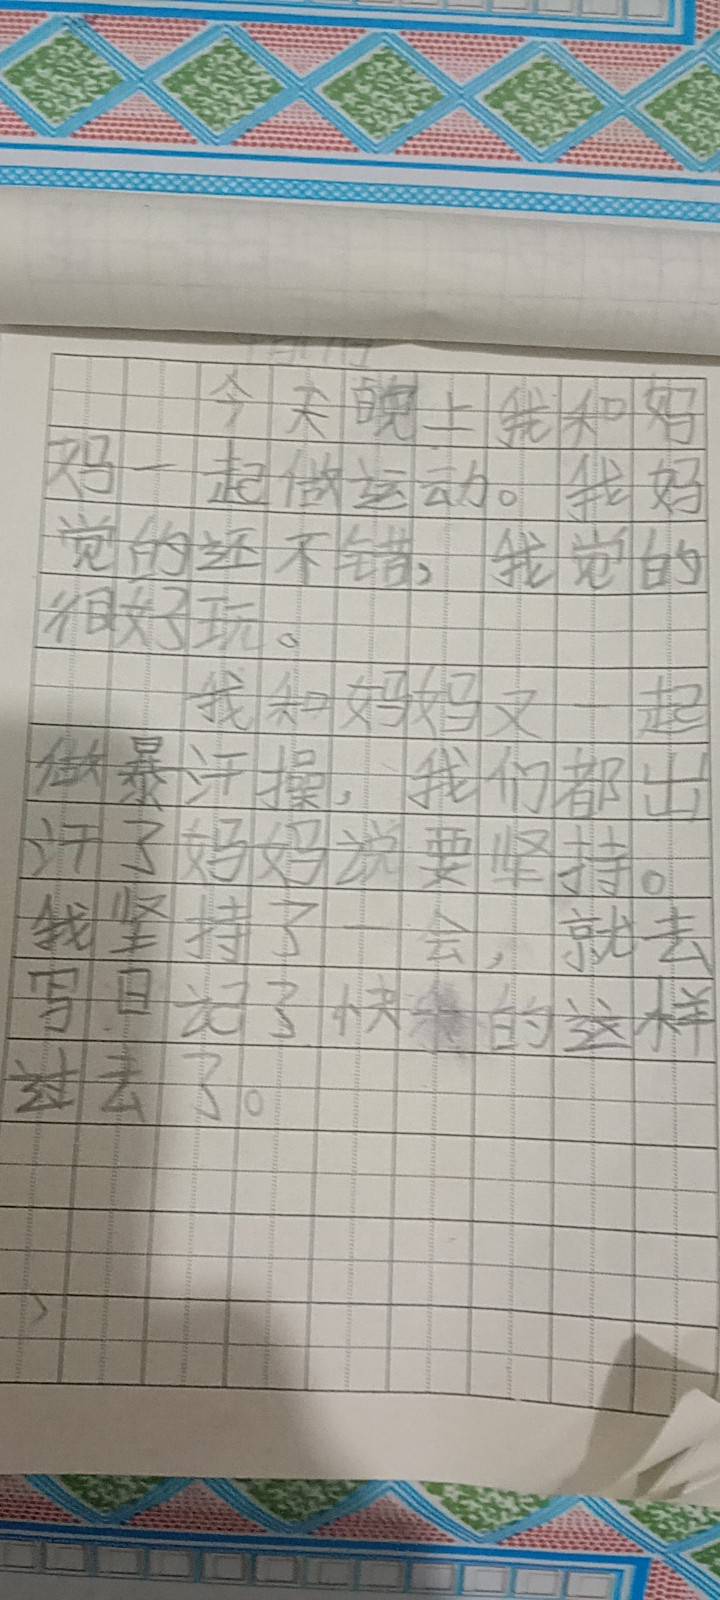 今天晚上我和妈
妈一起做运动。我妈
觉的还不错，我觉的
很好玩。
我和妈妈又一起
做暴汗操，我们都出
汗了妈妈说要坚持。
我坚持了一会，就去
写日记了快的这样
过去了。